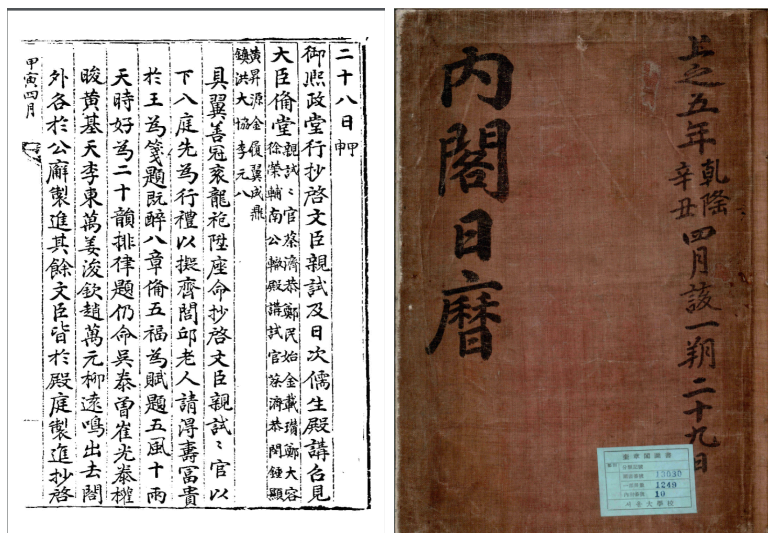 二十八日甲申
御熙政堂行抄啓文臣親試及日次儒生殿講召見
大臣備堂親試試官蔡濟恭鄭民始金載瓚鄭大容
徐榮輔南公轍殿講試官蔡濟恭閔鍾顯
黃昇源金履翼成鼎
鎮洪大協李元八
具翼善冠衮龍袍陞座命抄啓文臣親試〻官以
下入庭先為行禮以擬齊閭邱老人請得壽冨貴
於王為箋題既醉八章備五福為賦題五風十雨
天時好為二十韻排律題仍命吳泰曽崔光泰權
晙黃基天李東萬姜浚欽趙萬元柳遠鳴出去閤
外各於公廨製進其餘文臣皆於殿庭製進抄啓
甲寅四月
上之五年乾隆辛丑四月該一朔二十九日
內閣日曆
奎章閣圖書
13030
1249
10
서울大學校